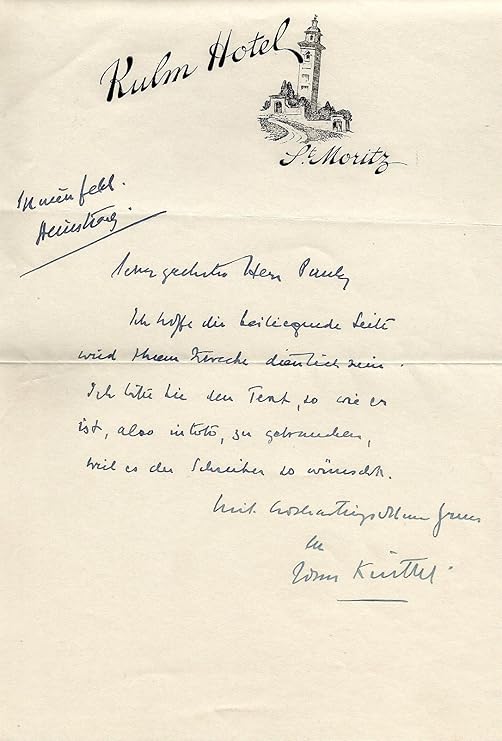 Kulm Hotel
St. Moritz
Sehr geehrter Herr Pauly
Ich hoffe die beiliegende Seite
wird Ihrem Zwecke dienlich sein.
Ich bitte Sie den Text, so wie er
ist, also in toto, zu gebrauchen,
weil es der Schreiber so wünscht.
Mit hochachtungsvollem Gruss